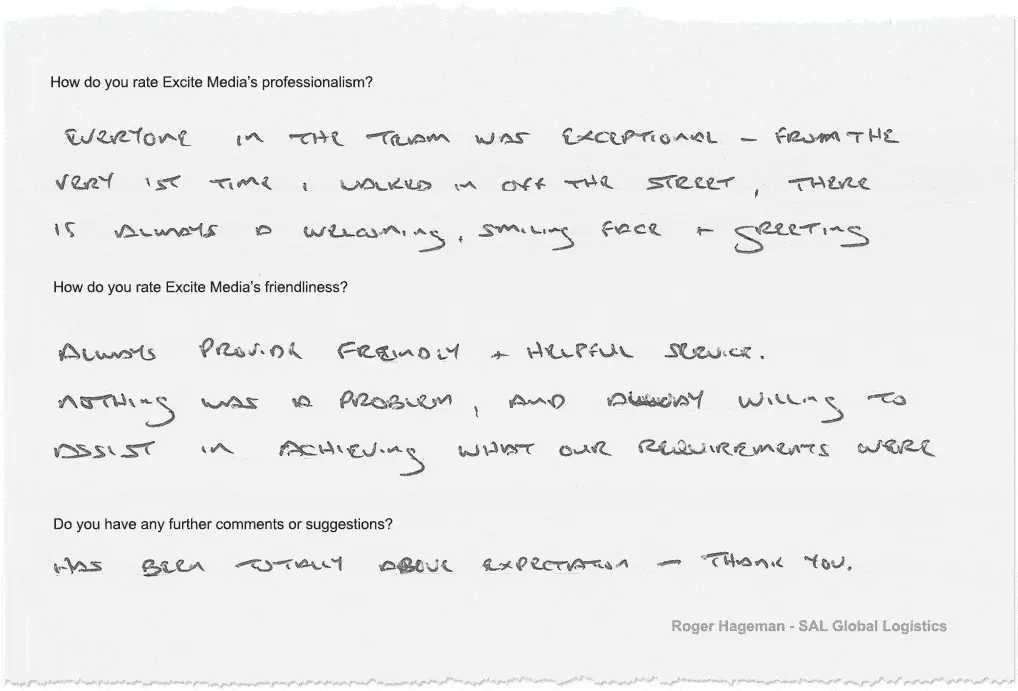 How do you rate Excite Media's professionalism?
EVERYONE IN THE TEAM WAS EXCEPTIONAL – FROM THE
VERY 1ST TIME I WALKED IN OFF THE STREET, THERE
IS ALWAYS A WELCOMING, SMILING FACE + GREETING
How do you rate Excite Media's friendliness?
ALWAYS PROVIDE FREINDLY + HELPFUL SERVICE.
NOTHING WAS A PROBLEM, AND WILLING TO
ASSIST IN ACHIEVING WHAT OUR REQUIREMENTS WERE
Do you have any further comments or suggestions?
HAS BEEN TOTALLY ABOVE EXPECTATION – THANK YOU.
Roger Hageman - SAL Global Logistics